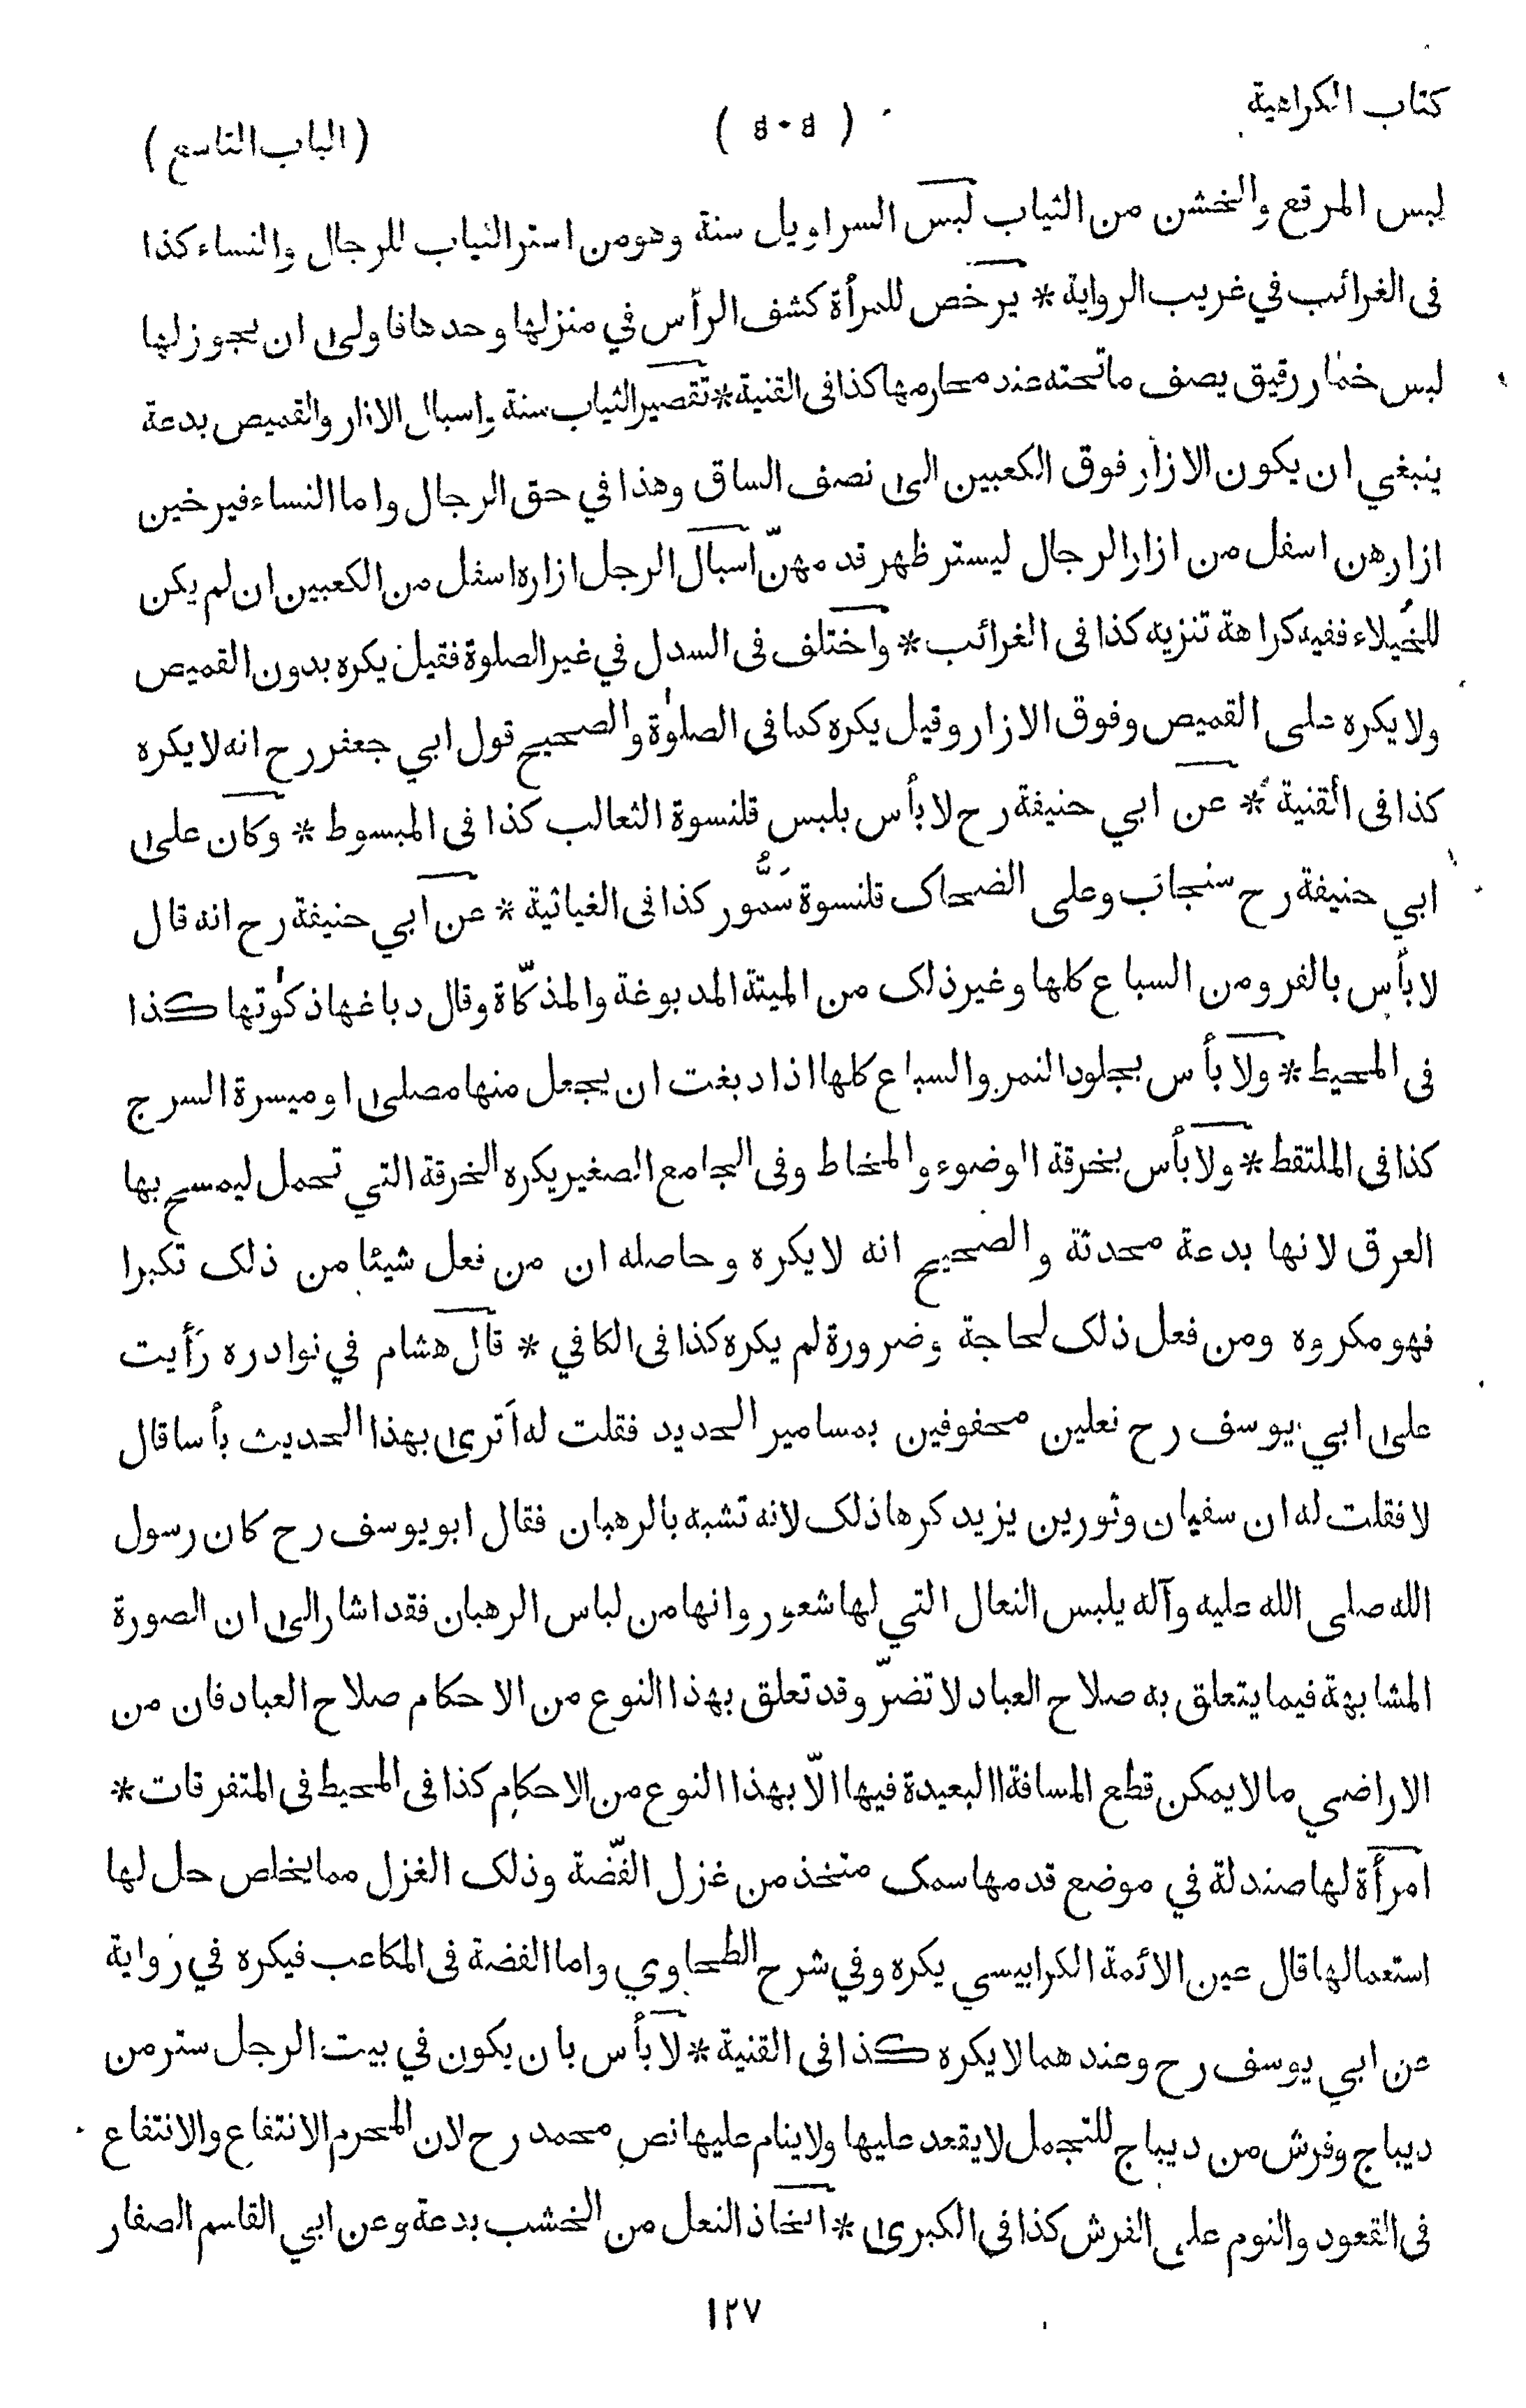 كتاب الكراهية
( ٥٠٥ )
( الباب التاسع )
لبس المرقع والخشن من الثياب لبس السراويل سنة وهو من استر الثياب للرجال والنساء كذا
فى الغرائب في غريب الرواية * يرخص للمرأة كشف الرأس في منزلها وحدها فاولى ان يجوز لها
لبس خمار رقيق يصف ما تحته عند محارمها كذا فى القنية * تقصير الثياب سنة واسبال الازار والقميص بدعة
ينبغي ان يكون الازار فوق الكعبين الى نصف الساق وهذا في حق الرجال واما النساء فيرخين
ازارهن اسفل من ازار الرجال ليستر ظهر قدمهنّ اسبال الرجل ازاره اسفل من الكعبين ان لم يكن
للخُيلاء ففيه كراهة تنزيه كذا فى الغرائب * واختلف فى السدل في غير الصلوة فقيل يكره بدون القميص
ولا يكره على القميص وفوق الازار وقيل يكره كما فى الصلوٰة والصحيح قول ابي جعفر رح انه لا يكره
كذا فى القنية * عن ابي حنيفة رح لا بأس بلبس قلنسوة الثعالب كذا فى المبسوط * وكان على
ابي حنيفة رح سنجاب وعلى الضحاك قلنسوة سَمُّور كذا فى الغياثية * عن ابي حنيفة رح انه قال
لا بأس بالفرو من السباع كلها وغير ذلك من الميتة المدبوغة والمذكّاة وقال دباغها ذكوٰتها كذا
فى المحيط * ولا بأس بجلود النمر والسباع كلها اذا دبغت ان يجعل منها مصلى او ميسرة السرج
كذا فى الملتقط * ولا بأس بخرقة الوضوء والمخاط وفى الجامع الصغير يكره الخرقة التي تحمل ليمسح بها
العرق لانها بدعة محدثة والصحيح انه لا يكره وحاصله ان من فعل شيئا من ذلك تكبرا
فهو مكروه ومن فعل ذلك لحاجة وضرورة لم يكره كذا فى الكافي * قال هشام في نوادره رَأيت
على ابي يوسف رح نعلين محفوفين بمسامير الحديد فقلت له اَترى بهذا الحديث بأسا قال
لا فقلت له ان سفيان وثورين يزيد كرها ذلك لانه تشبه بالرهبان فقال ابو يوسف رح كان رسول
الله صلى الله عليه وآله يلبس النعال التي لها شعور وانها من لباس الرهبان فقد اشار الى ان الصورة
المشابهة فيما يتعلق به صلاح العباد لا تضرّ وقد تعلق بهذا النوع من الاحكام صلاح العباد فان من
الاراضي ما لا يمكن قطع المسافة االبعيدة فيها الّا بهذا النوع من الاحكام كذا فى المحيط فى المتفرقات *
امرأة لها صندلة في موضع قدمها سمك متخذ من غزل الفضّة وذلك الغزل مما يخلص حل لها
استعمالها قال عين الائمة الكرابيسي يكره وفي شرح الطحاوي واما الفضة فى المكاعب فيكره في رواية
عن ابي يوسف رح وعندهما لا يكره كذا فى القنية * لا بأس بان يكون في بيت الرجل ستر من
ديباج وفرش من ديباج للتجمل لا يقعد عليها ولا ينام عليها نص محمد رح لان المحرم الانتفاع والانتفاع
فى القعود والنوم على الفرش كذا فى الكبرى * اتخاذ النعل من الخشب بدعة وعن ابي القاسم الصفار
١٢٧